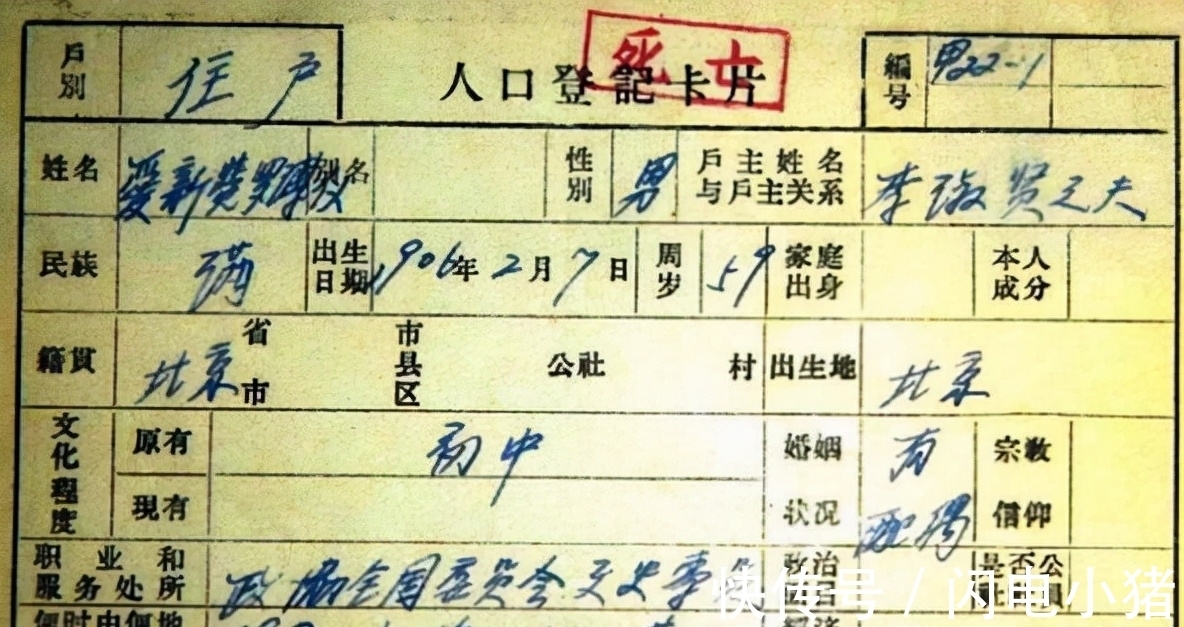 死亡
戶別 住户 人口登記卡片 編号 男22-1
姓名 爱新觉罗溥仪 别名 性別 男 戶主姓名与戶主关系 李淑贤之夫
民族 满 出生日期 1906年2月7日 周岁 59 家庭出身 本人成分
籍贯 北京 省市 市县区 公社 村 出生地 北京
文化程度 原有 初中 婚姻状况 有配偶 宗教信仰
現有
职业和服务处所 政协全国委员会文史专 政治 是否公
何时由何地
快传号 / 闪电小猪